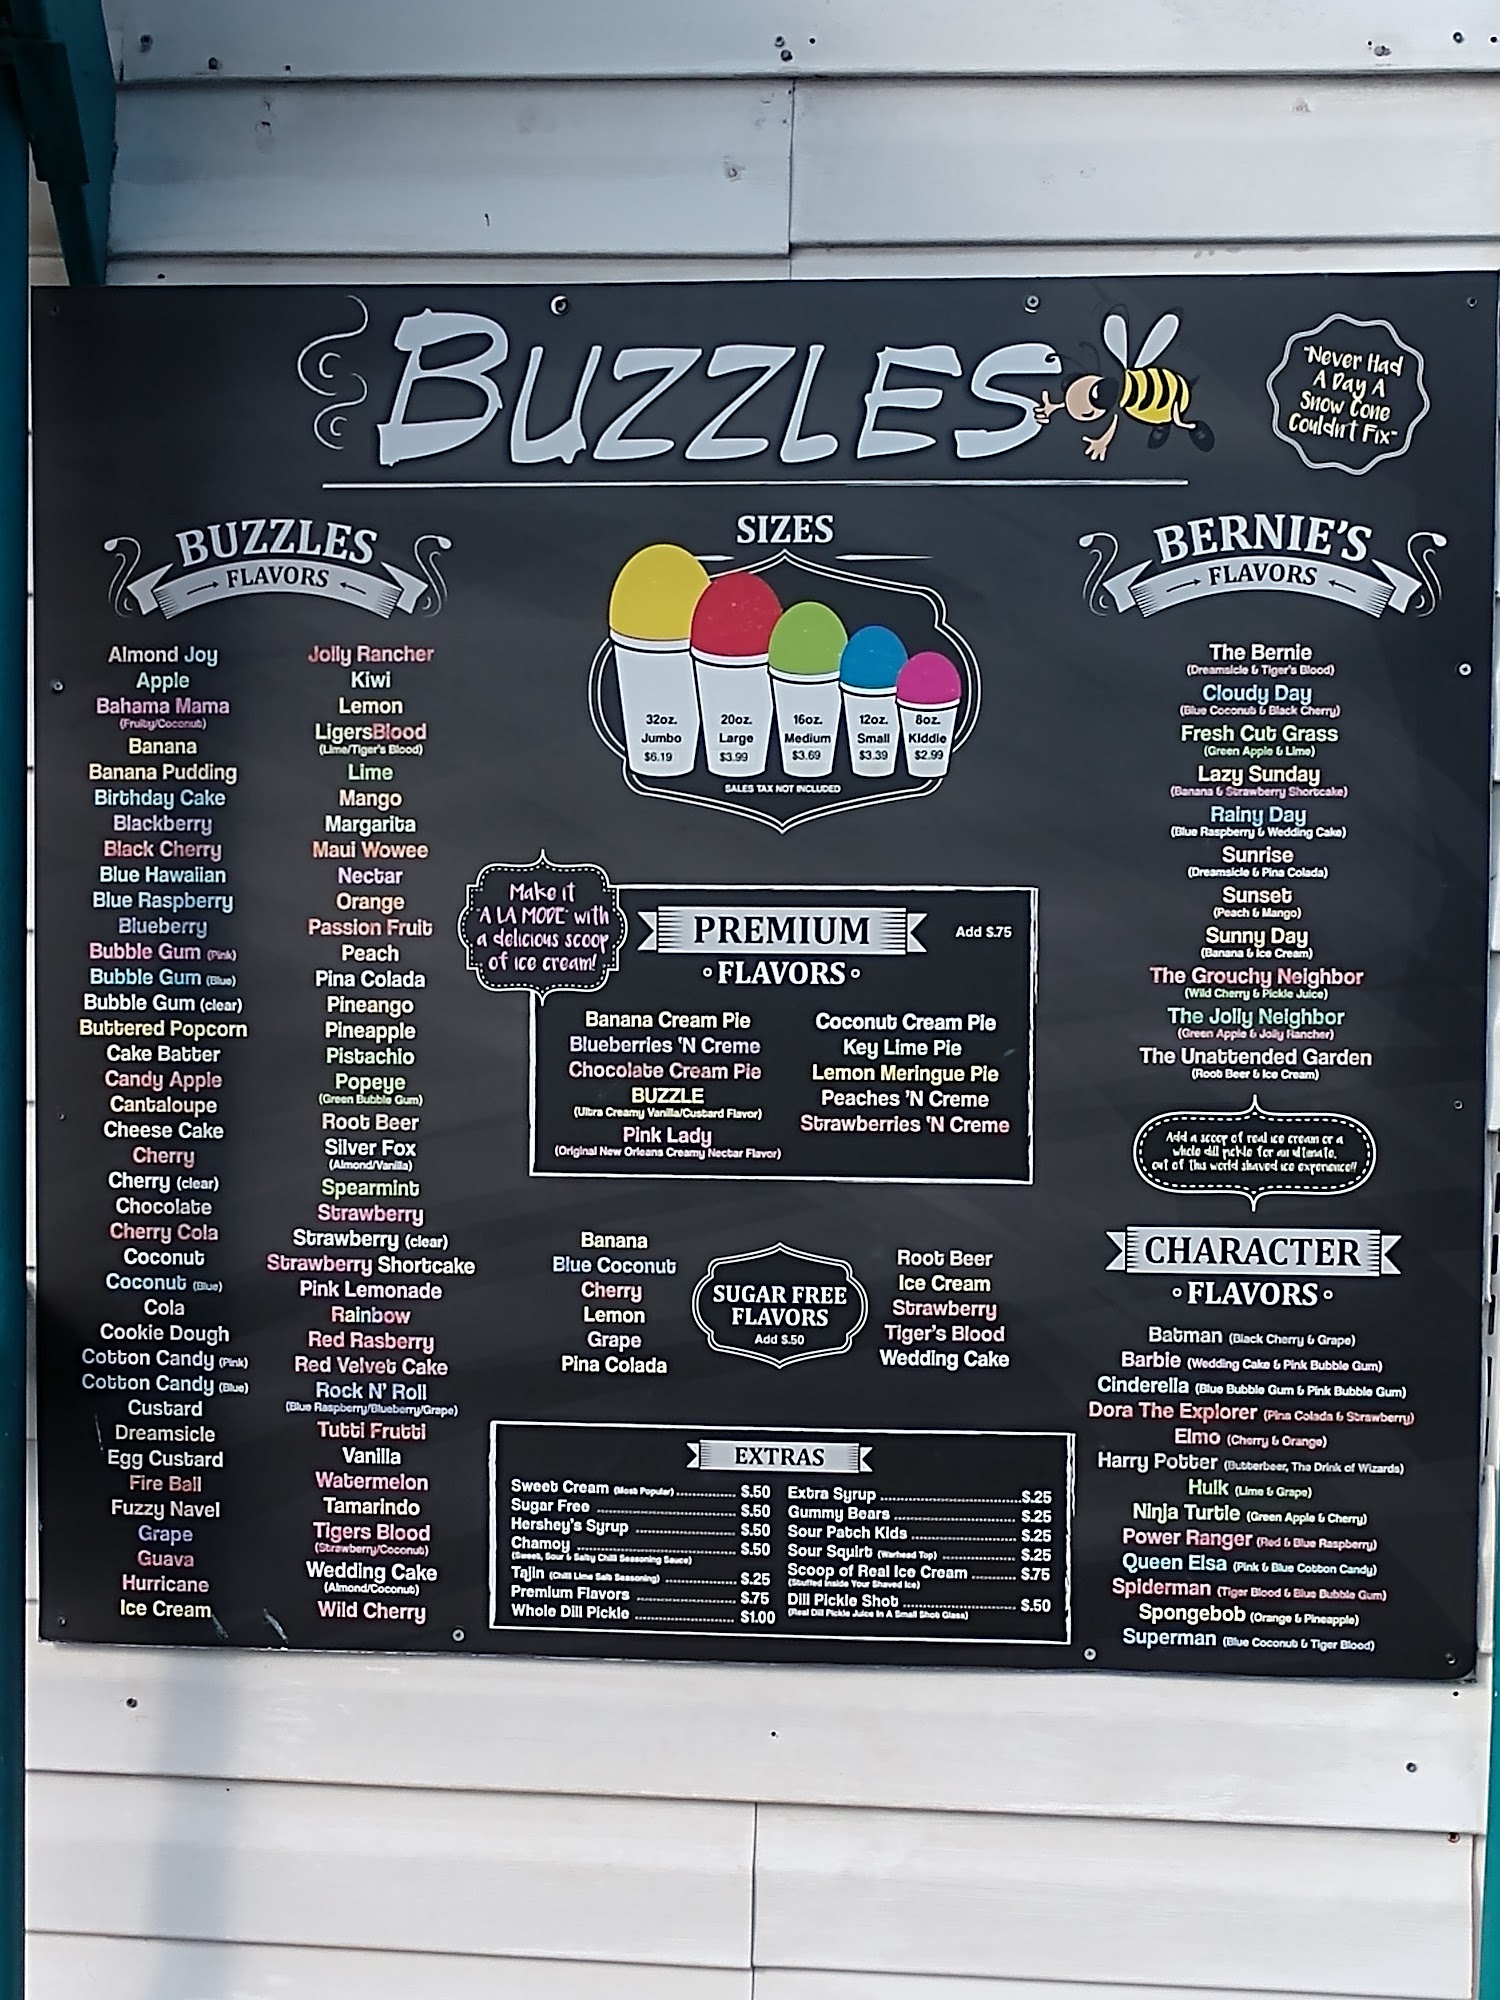 BUZZLES
"Never Had
A Day A
Snow Cone
Couldn't Fix"
BUZZLES
FLAVORS
Almond Joy
Apple
Bahama Mama
(Fruity/Coconut)
Banana
Banana Pudding
Birthday Cake
Blackberry
Black Cherry
Blue Hawaiian
Blue Raspberry
Blueberry
Bubble Gum (Pink)
Bubble Gum (Blue)
Bubble Gum (clear)
Buttered Popcorn
Cake Batter
Candy Apple
Cantaloupe
Cheese Cake
Cherry
Cherry (clear)
Chocolate
Cherry Cola
Coconut
Coconut (Blue)
Cola
Cookie Dough
Cotton Candy (Pink)
Cotton Candy (Blue)
Custard
Dreamsicle
Egg Custard
Fire Ball
Fuzzy Navel
Grape
Guava
Hurricane
Ice Cream
Jolly Rancher
Kiwi
Lemon
LigersBlood
(Lime/Tiger's Blood)
Lime
Mango
Margarita
Maui Wowee
Nectar
Orange
Passion Fruit
Peach
Pina Colada
Pineango
Pineapple
Pistachio
Popeye
(Green Bubble Gum)
Root Beer
Silver Fox
(Almond/Vanilla)
Spearmint
Strawberry
Strawberry (clear)
Strawberry Shortcake
Pink Lemonade
Rainbow
Red Rasberry
Red Velvet Cake
Rock N' Roll
(Blue Raspberry/Blueberry/Grape)
Tutti Frutti
Vanilla
Watermelon
Tamarindo
Tigers Blood
(Strawberry/Coconut)
Wedding Cake
(Almond/Coconut)
Wild Cherry
SIZES
32oz. Jumbo $6.19
20oz. Large $3.99
16oz. Medium $3.69
12oz. Small $3.39
8oz. Kiddie $2.99
SALES TAX NOT INCLUDED
Make it
"A LA MODE" with
a delicious scoop
of ice cream!
PREMIUM
Add $.75
FLAVORS
Banana Cream Pie
Blueberries 'N Creme
Chocolate Cream Pie
BUZZLE
(Ultra Creamy Vanilla/Custard Flavor)
Pink Lady
(Original New Orleans Creamy Nectar Flavor)
Coconut Cream Pie
Key Lime Pie
Lemon Meringue Pie
Peaches 'N Creme
Strawberries 'N Creme
SUGAR FREE
FLAVORS
Add $.50
Banana
Blue Coconut
Cherry
Lemon
Grape
Pina Colada
Root Beer
Ice Cream
Strawberry
Tiger's Blood
Wedding Cake
EXTRAS
Sweet Cream (Most Popular) $.50
Sugar Free $.50
Hershey's Syrup $.50
Chamoy $.50
(Sweet, Sour & Salty Chili Seasoning Sauce)
Tajin (Chili Lime Salt Seasoning) $.25
Premium Flavors $.75
Whole Dill Pickle $1.00
Extra Syrup $.25
Gummy Bears $.25
Sour Patch Kids $.25
Sour Squirt (Warhead Top) $.25
Scoop of Real Ice Cream $.75
(Stuffed Inside Your Shaved Ice)
Dill Pickle Shot $.50
(Real Dill Pickle Juice In A Small Shot Glass)
BERNIE'S
FLAVORS
The Bernie
(Dreamsicle & Tiger's Blood)
Cloudy Day
(Blue Coconut & Black Cherry)
Fresh Cut Grass
(Green Apple & Lime)
Lazy Sunday
(Banana & Strawberry Shortcake)
Rainy Day
(Blue Raspberry & Wedding Cake)
Sunrise
(Dreamsicle & Pina Colada)
Sunset
(Peach & Mango)
Sunny Day
(Banana & Ice Cream)
The Grouchy Neighbor
(Wild Cherry & Pickle Juice)
The Jolly Neighbor
(Green Apple & Jolly Rancher)
The Unattended Garden
(Root Beer & Ice Cream)
Add a scoop of real ice cream or a
whole dill pickle for an ultimate,
out of this world shaved ice experience!!
CHARACTER
FLAVORS
Batman (Black Cherry & Grape)
Barbie (Wedding Cake & Pink Bubble Gum)
Cinderella (Blue Bubble Gum & Pink Bubble Gum)
Dora The Explorer (Pina Colada & Strawberry)
Elmo (Cherry & Orange)
Harry Potter (Butterbeer, The Drink of Wizards)
Hulk (Lime & Grape)
Ninja Turtle (Green Apple & Cherry)
Power Ranger (Red & Blue Raspberry)
Queen Elsa (Pink & Blue Cotton Candy)
Spiderman (Tiger Blood & Blue Bubble Gum)
Spongebob (Orange & Pineapple)
Superman (Blue Coconut & Tiger Blood)